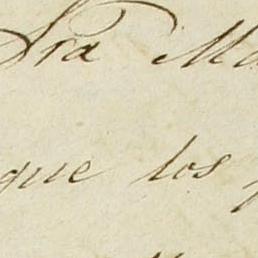 Sra Ma
que los